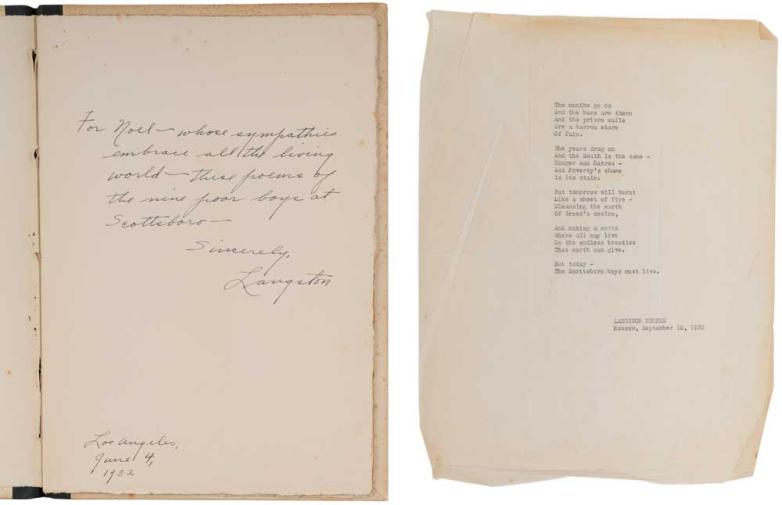 For Noël — whose sympathies
embrace all the living
world — these poems of
the nine poor boys at
Scottsboro —
Sincerely,
Langston
Los Angeles,
June 4,
1932
The months go on
And the bars are there
And the prison walls
Are a barren stare
Of Pain.
The years drag on
And the South is the same -
Hunger and Hatred -
And Poverty's shame
Is its stain.
But tomorrow will burst
Like a sheet of fire -
Cleansing the earth
Of Greed's desire,
And making a world
Where all may live
On the endless bounties
That earth can give.
But today -
The Scottsboro boys must live.
LANGSTON HUGHES
Moscow, September 1932